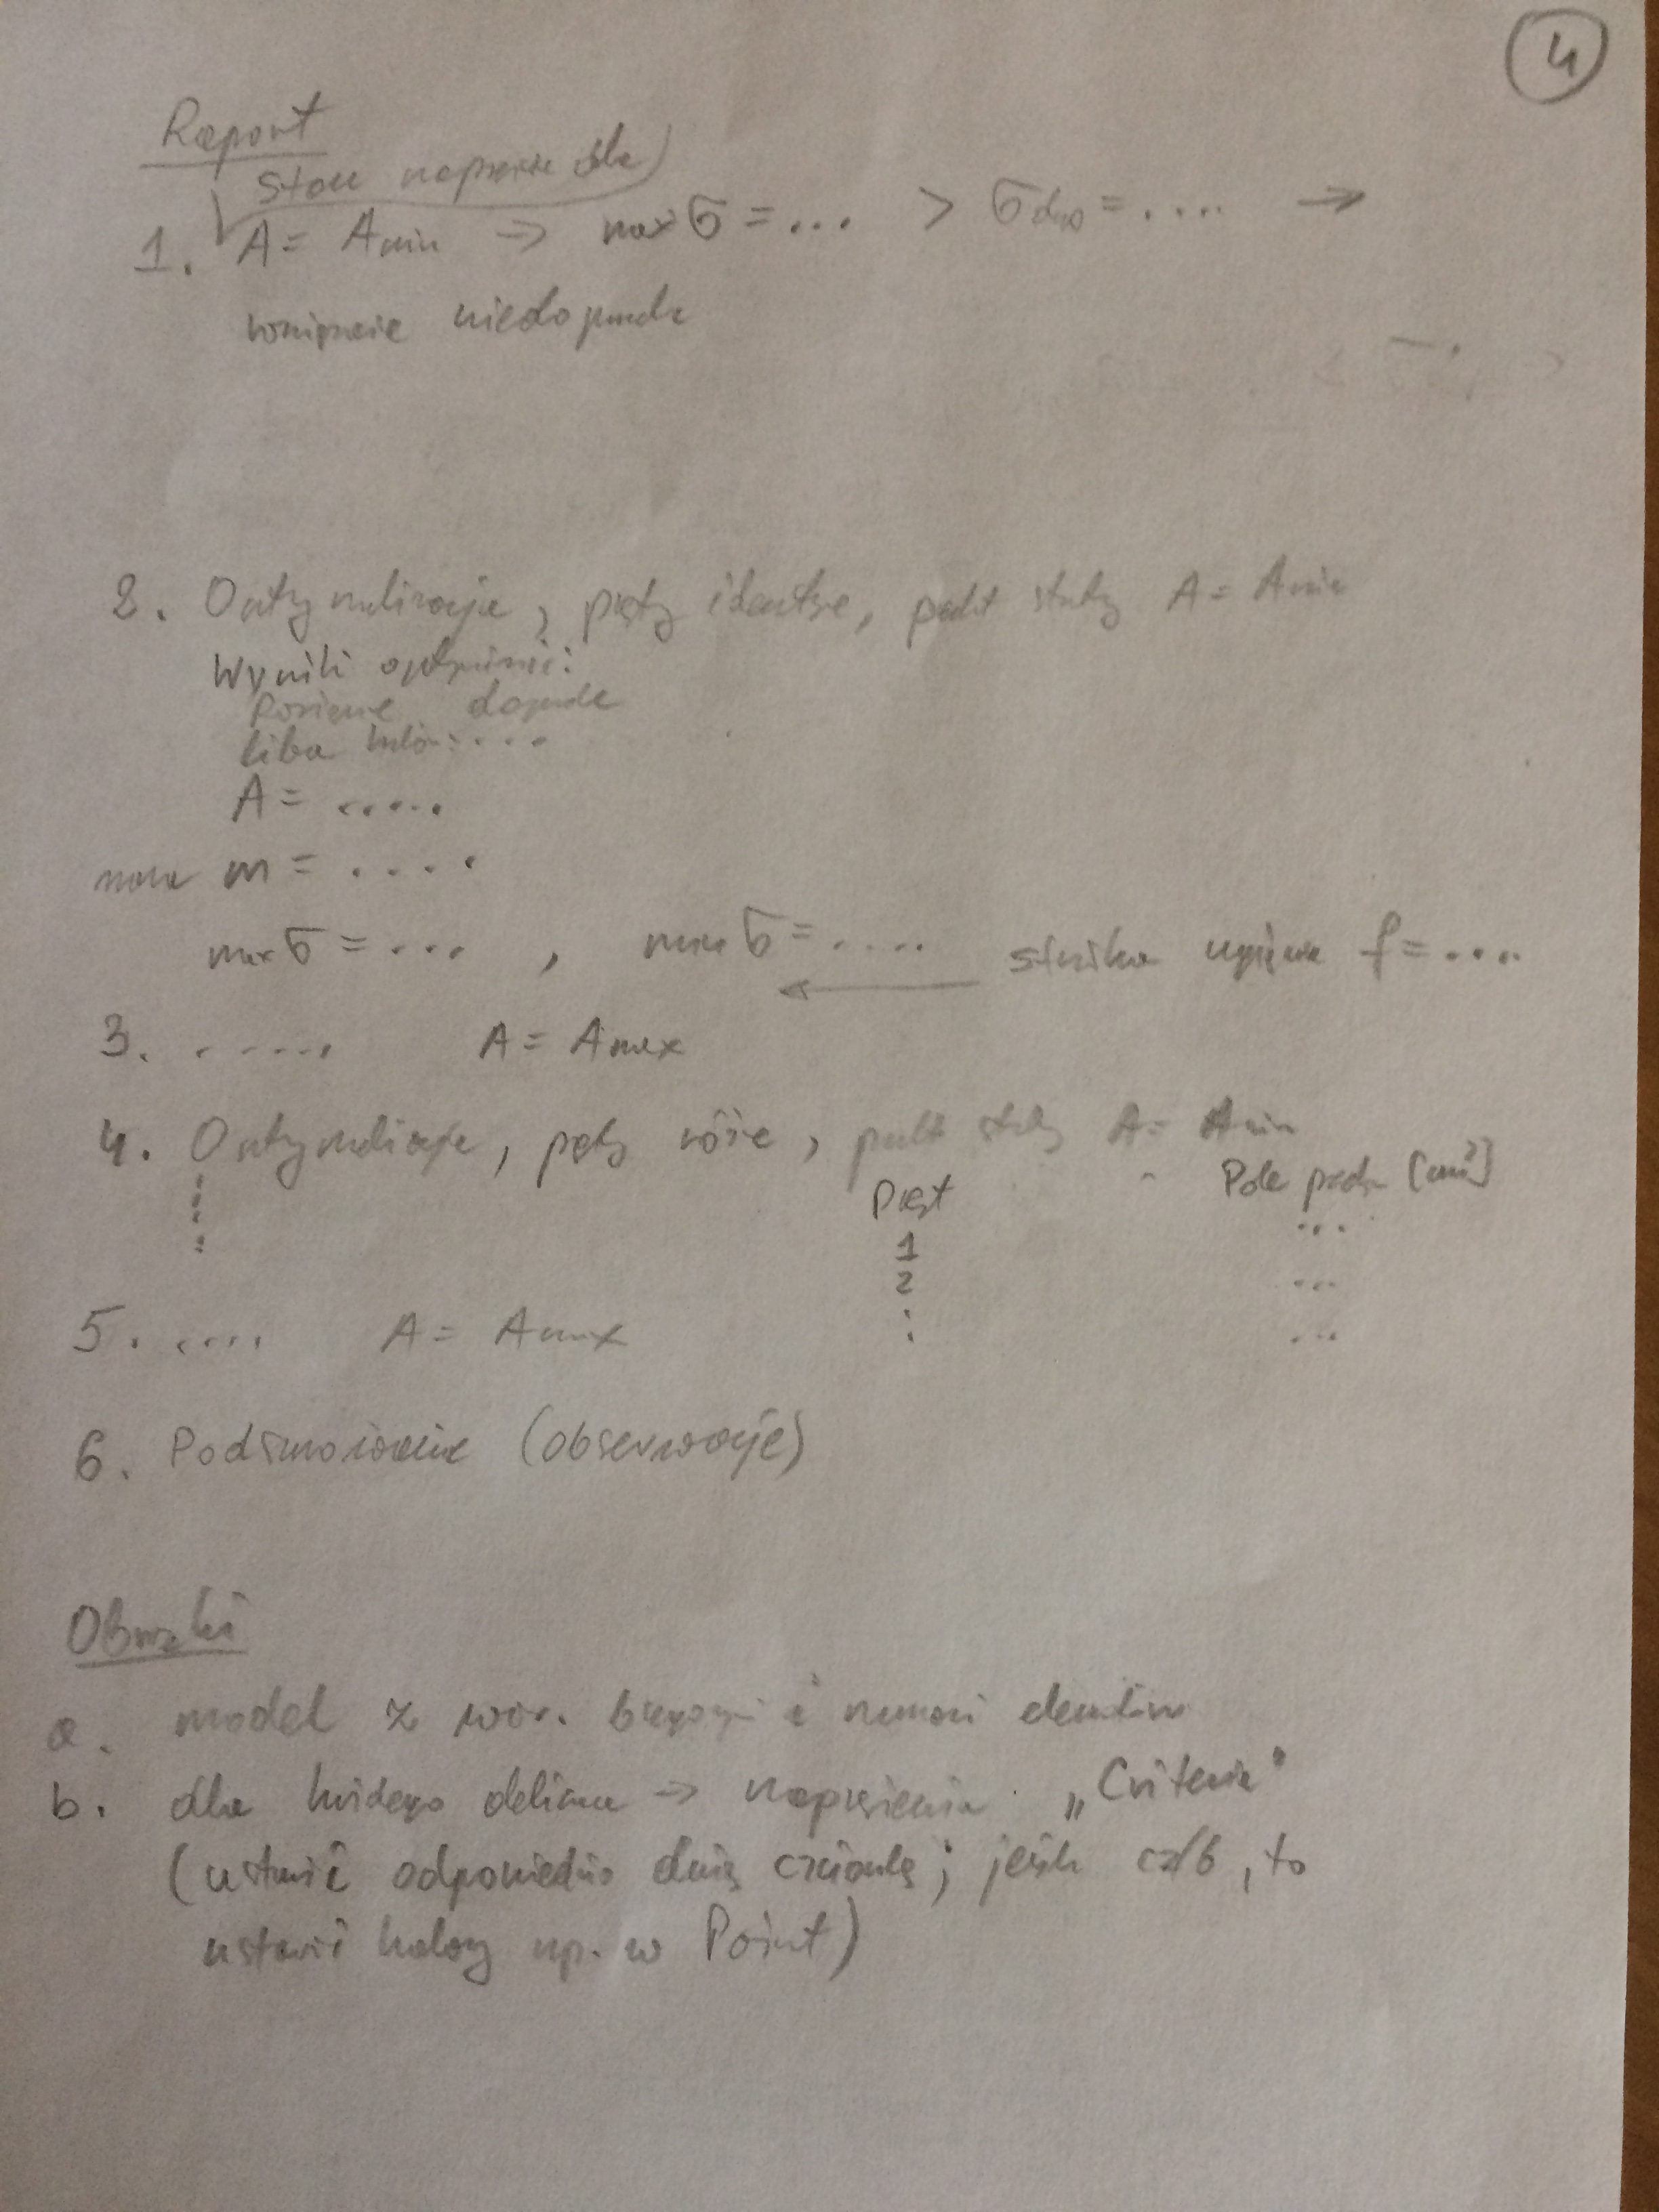 4
Raport
stan naprężeń dla
1. A = Amin → max σ = ... > σdop = .... →
rozwiązanie niedopuszcz
2. Optymalizacja, pręty identyczne, punkt startowy A = Amin
Wyniki optymalizacji:
Rozwiązanie dopuszcz
liczba iteracji: ...
A = .....
masa m = ....
max σ = ... , min σ = .... strzałka ugięcia f = ....
3. ..... A = Amax
4. Optymalizacja, pręty różne, punkt startowy A = Amin
Pręt Pole przekr [cm²]
1 ...
2 ...
: ...
5. .... A = Amax
6. Podsumowanie (obserwacje)
Obrazki
a. model z war. brzegowymi i numerami elementów
b. dla każdego zadania → naprężenia „Criteria”
(ustawić odpowiednio dużą czcionkę; jeśli cz/b, to
ustawić kolory np. w Paint)